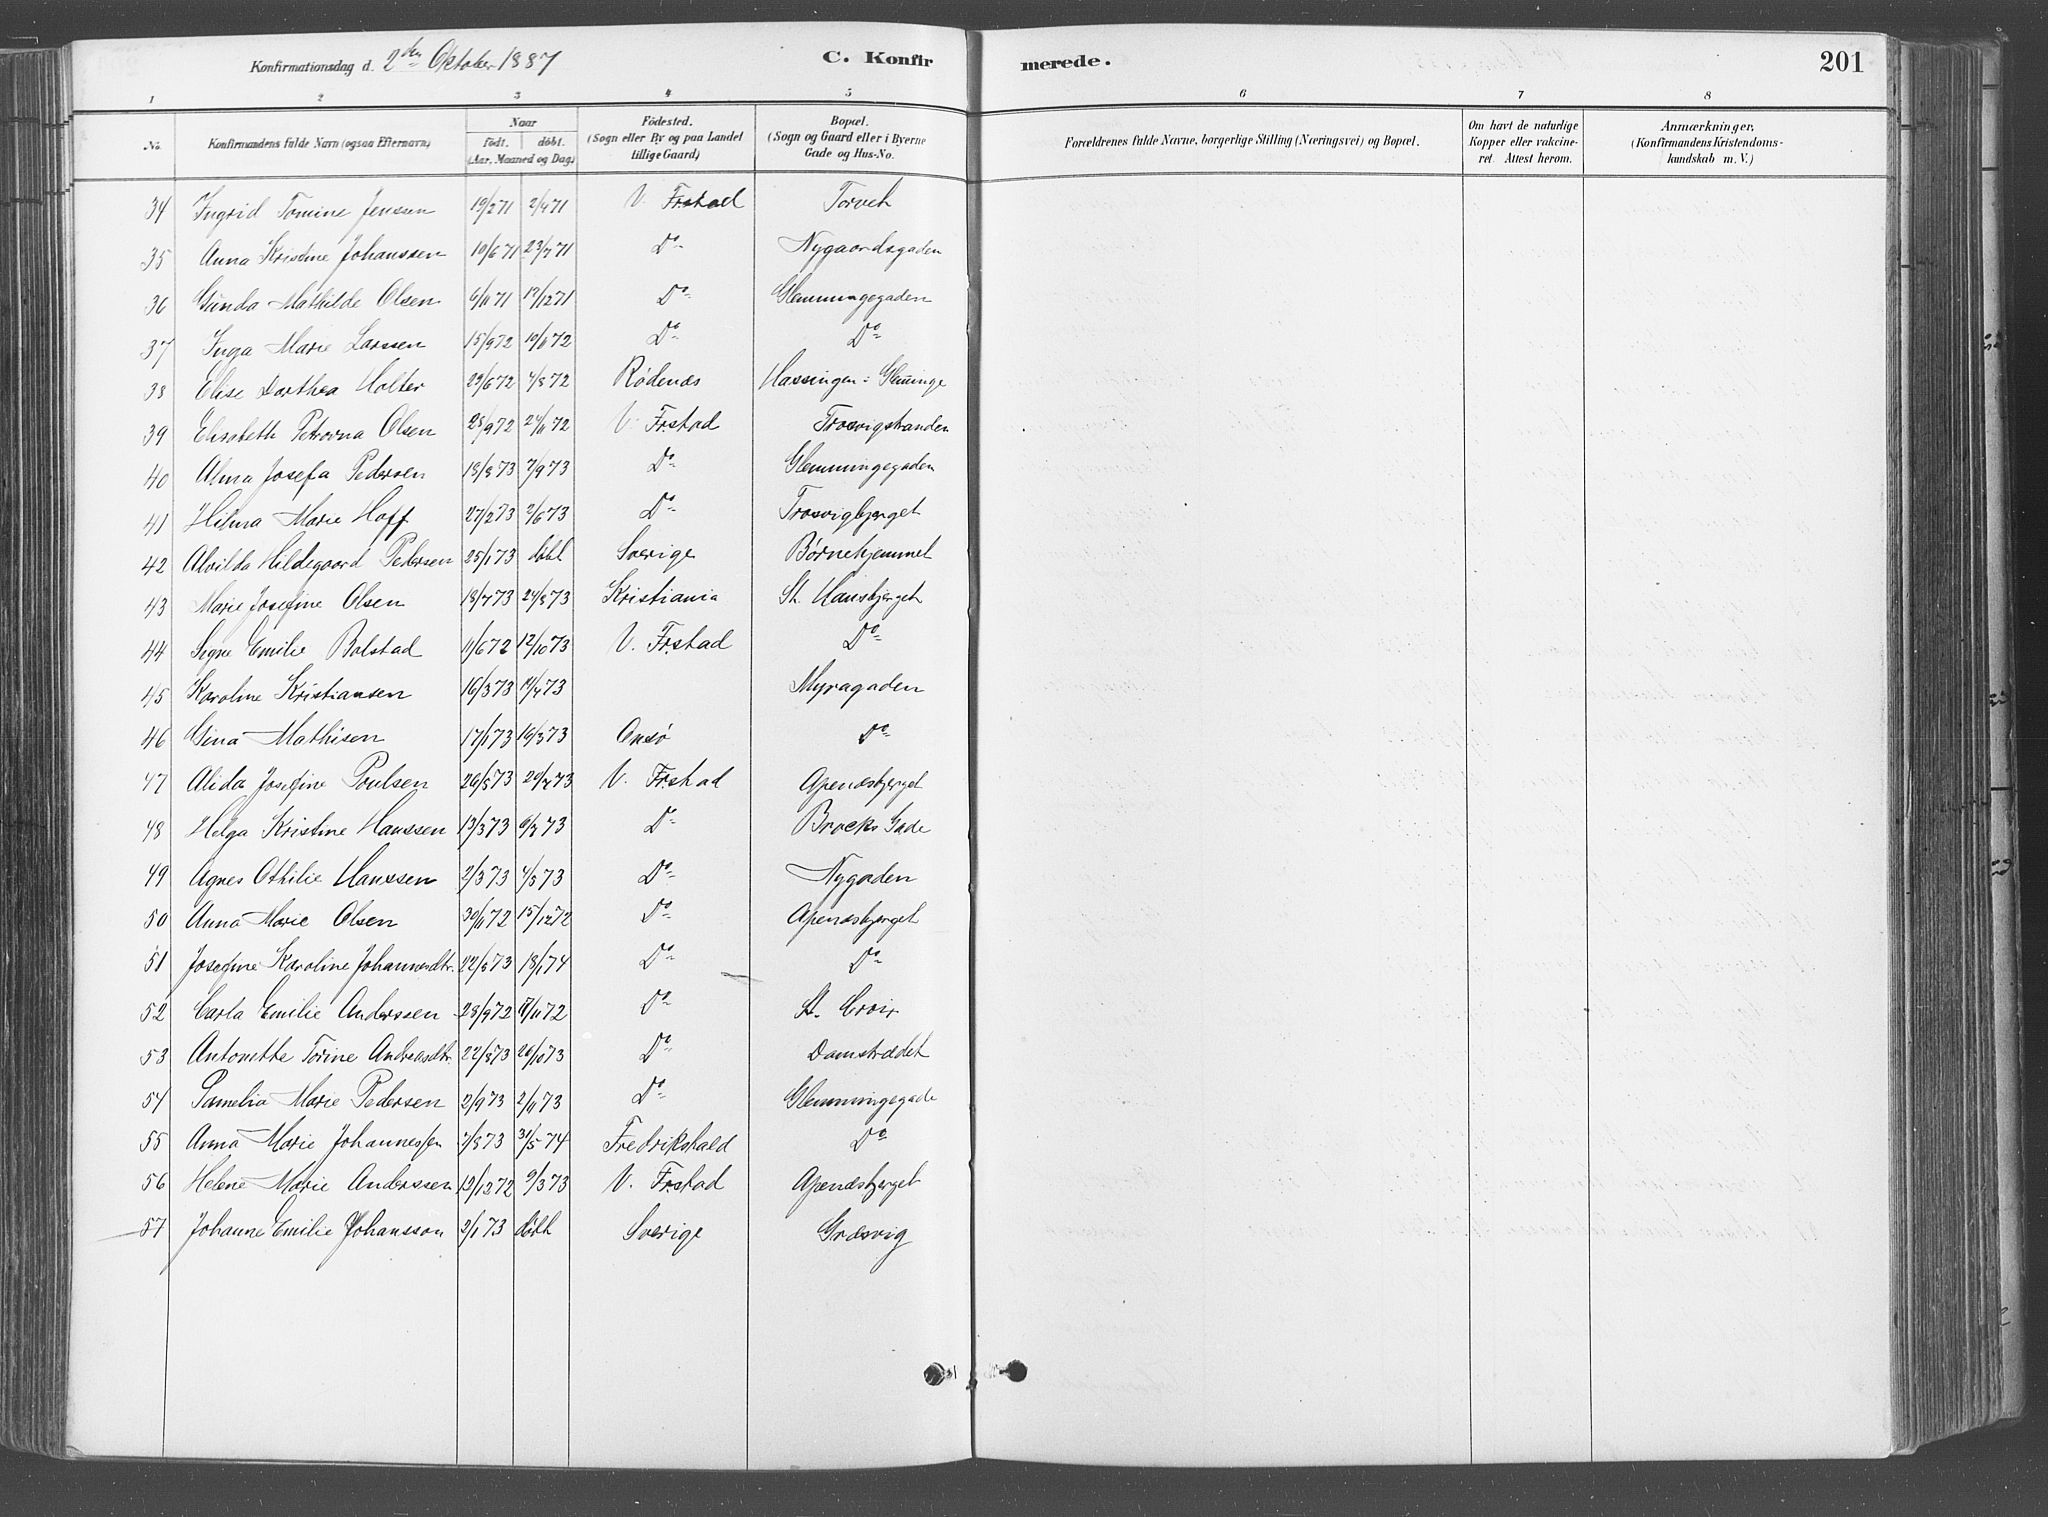 Konfirmationsdag d. 2den Oktober 1887 C. Konfirmerede. 201
1 2 3 4 5 6 7 8
No. Konfirmandens fulde Navn (ogsaa Efternavn) Naar födt. döbt. (Aar, Maaned og Dag) Födested. (Sogn eller By og paa Landet tillige Gaard) Bopæl. (Sogn og Gaard eller i Byerne Gade og Hus-No. Forældrenes fulde Navne, borgerlige Stilling (Næringsvei) og Bopæl. Om havt de naturlige Kopper eller vakcineret. Attest herom. Anmærkninger, (Konfirmandens Kristendomskundskab m. V.)
34 Ingrid Tomine Jenssen 19/2 71 2/4 71 V. Frstad Torvet
35 Anna Kristine Johanssen 10/6 71 23/7 71 Do Nygaardsgaden
36 Gunda Mathilde Olsen 6/11 71 19/12 71 Do Glemmingegaden
37 Inga Marie Larssen 15/9 72 10/11 72 Do Do
38 Elise Dorthea Holter 23/6 72 4/8 72 Rødenæs Hassingen: Glemminge
39 Elisabeth Petrovna Olsen 25/9 72 24/11 72 V. Frstad Trosvigstranden
40 Alma Josefa Pedersen 18/8 73 7/9 73 Do Glemmingegaden
41 Hilma Marie Hoff 27/2 73 2/6 73 Do Trosvigbjerget
42 Alvilda Hildegaard Pedersen 25/1 73 döbt Sverige Børnehjemmet
43 Marie Josefine Olsen 18/7 73 24/8 73 Kristiania St. Hansbjerget
44 Signe Emilie Bolstad 11/6 72 12/10 73 V. Frstad Do
45 Karoline Kristiansen 16/3 73 14/4 73 Myragaden
46 Gina Mathisen 17/1 73 16/3 73 Onsö Do
47 Alida Josefine Poulsen 26/5 73 20/7 73 V. Frstad Apenæsbjerget
48 Helga Kristine Hanssen 13/3 73 6/7 73 Do Brocks Gade
49 Agnes Othilie Hanssen 2/3 73 4/5 73 Do Nygaden
50 Anna Marie Olsen 30/11 72 15/12 72 Do Apenæsbjerget
51 Josefine Karoline Johannesdtr. 22/5 73 18/1 74 Do Do
52 Carla Emilie Anderssen 28/9 72 17/11 72 Do St. Croix
53 Antonette Torine Andreasdtr. 22/8 73 26/10 73 Do Damstrædet
54 Pamelia Marie Pedersen 2/9 73 2/11 73 Do Glemmingegade
55 Anna Marie Johannessen 7/8 73 31/5 74 Fredrikshald Do
56 Helene Marie Anderssen 12/12 72 9/3 73 V. Frstad Apenæsbjerget
57 Johanne Emilie Johansson 2/1 73 döbt Sverige Græsvig